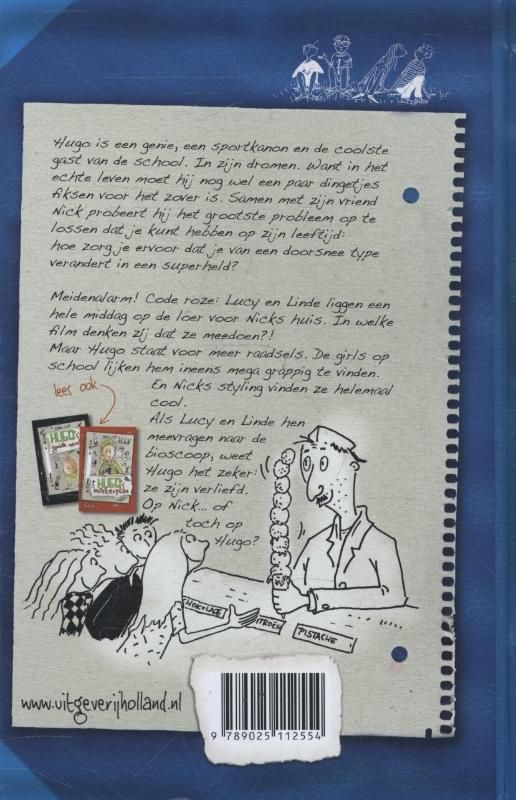 Hugo is een genie, een sportkanon en de coolste
gast van de school. In zijn dromen. Want in het
echte leven moet hij nog wel een paar dingetjes
fiksen voor het zover is. Samen met zijn vriend
Nick probeert hij het grootste probleem op te
lossen dat je kunt hebben op zijn leeftijd:
hoe zorg je ervoor dat je van een doorsnee type
verandert in een superheld?
Meidenalarm! Code roze: Lucy en Linde liggen een
hele middag op de loer voor Nicks huis. In welke
film denken zij dat ze meedoen?!
Maar Hugo staat voor meer raadsels. De girls op
school lijken hem ineens mega grappig te vinden.
En Nicks styling vinden ze helemaal
cool.
lees ook
Als Lucy en Linde hen
meevragen naar de
bioscoop, weet
Hugo het zeker:
ze zijn verliefd.
Op Nick... of
toch op
Hugo?
HUGO'S
HUGO'S
CHOKOLADE
CITROEN
PISTACHE
www.uitgeverijholland.nl
9 789025 112554